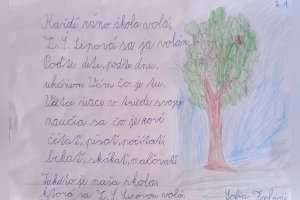 2. A
Každé ráno škola volá,
Z. Š. Lipová sa ja volám.
Poďte deti, poďte dnu,
ukážem Vám čo je tu.
Všetci žiaci v triede svojej
naučia sa čo je nové
čítať, písať, počítať,
behať, skákať, maľovať.
Takáto je naša škola,
ktorá sa Z. Š. Lipová volá.
Sofia